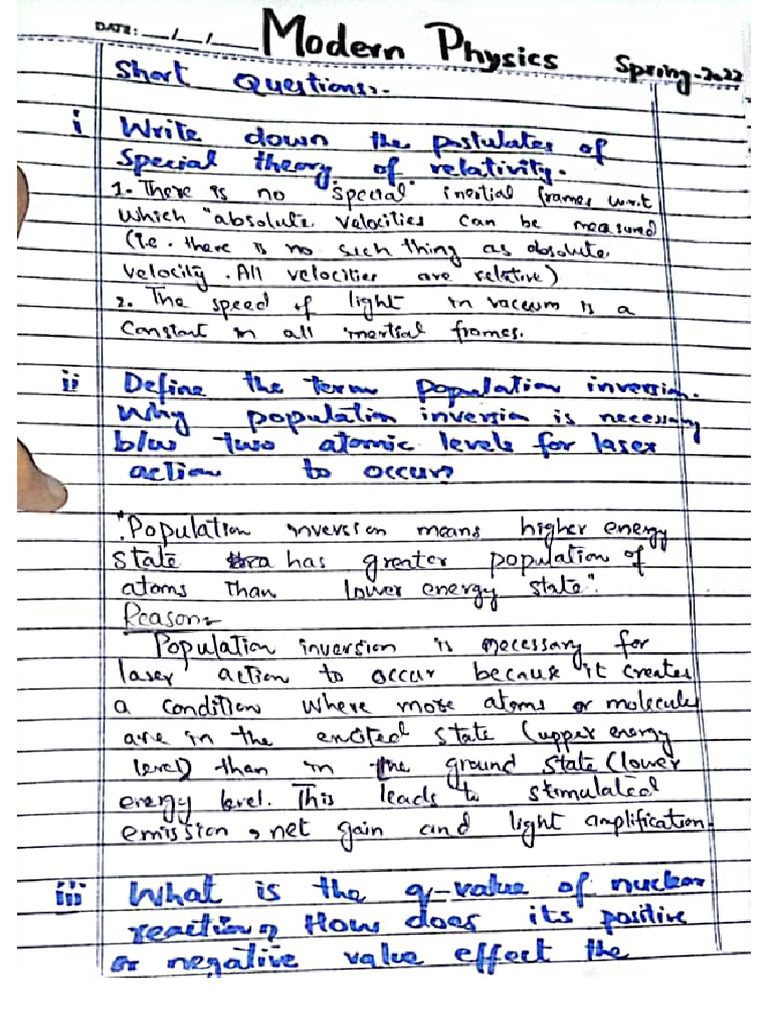 DATE: __/__/__ Modern Physics Spring-2022
Short Questions:-
i Write down the postulates of
special theory of relativity.
1. There is no "special" inertial frames w.r.t
which "absolute velocities can be measured
(i.e. there is no such thing as absolute
velocity. All velocities are relative)
2. The speed of light in vaccum is a
constant in all inertial frames.
ii Define the term population inversion.
Why population inversion is necessary
b/w two atomic levels for laser
action to occur?
"Population inversion means higher energy
state has greater population of
atoms than lower energy state".
Reason:-
Population inversion is necessary for
laser action to occur because it creates
a condition where more atoms or molecules
are in the excited state (upper energy
level) than in the ground state (lower
energy level. This leads to stimulated
emission, net gain and light amplification.
iii What is the q-value of nuclear
reaction? How does its positive
or negative value effect the